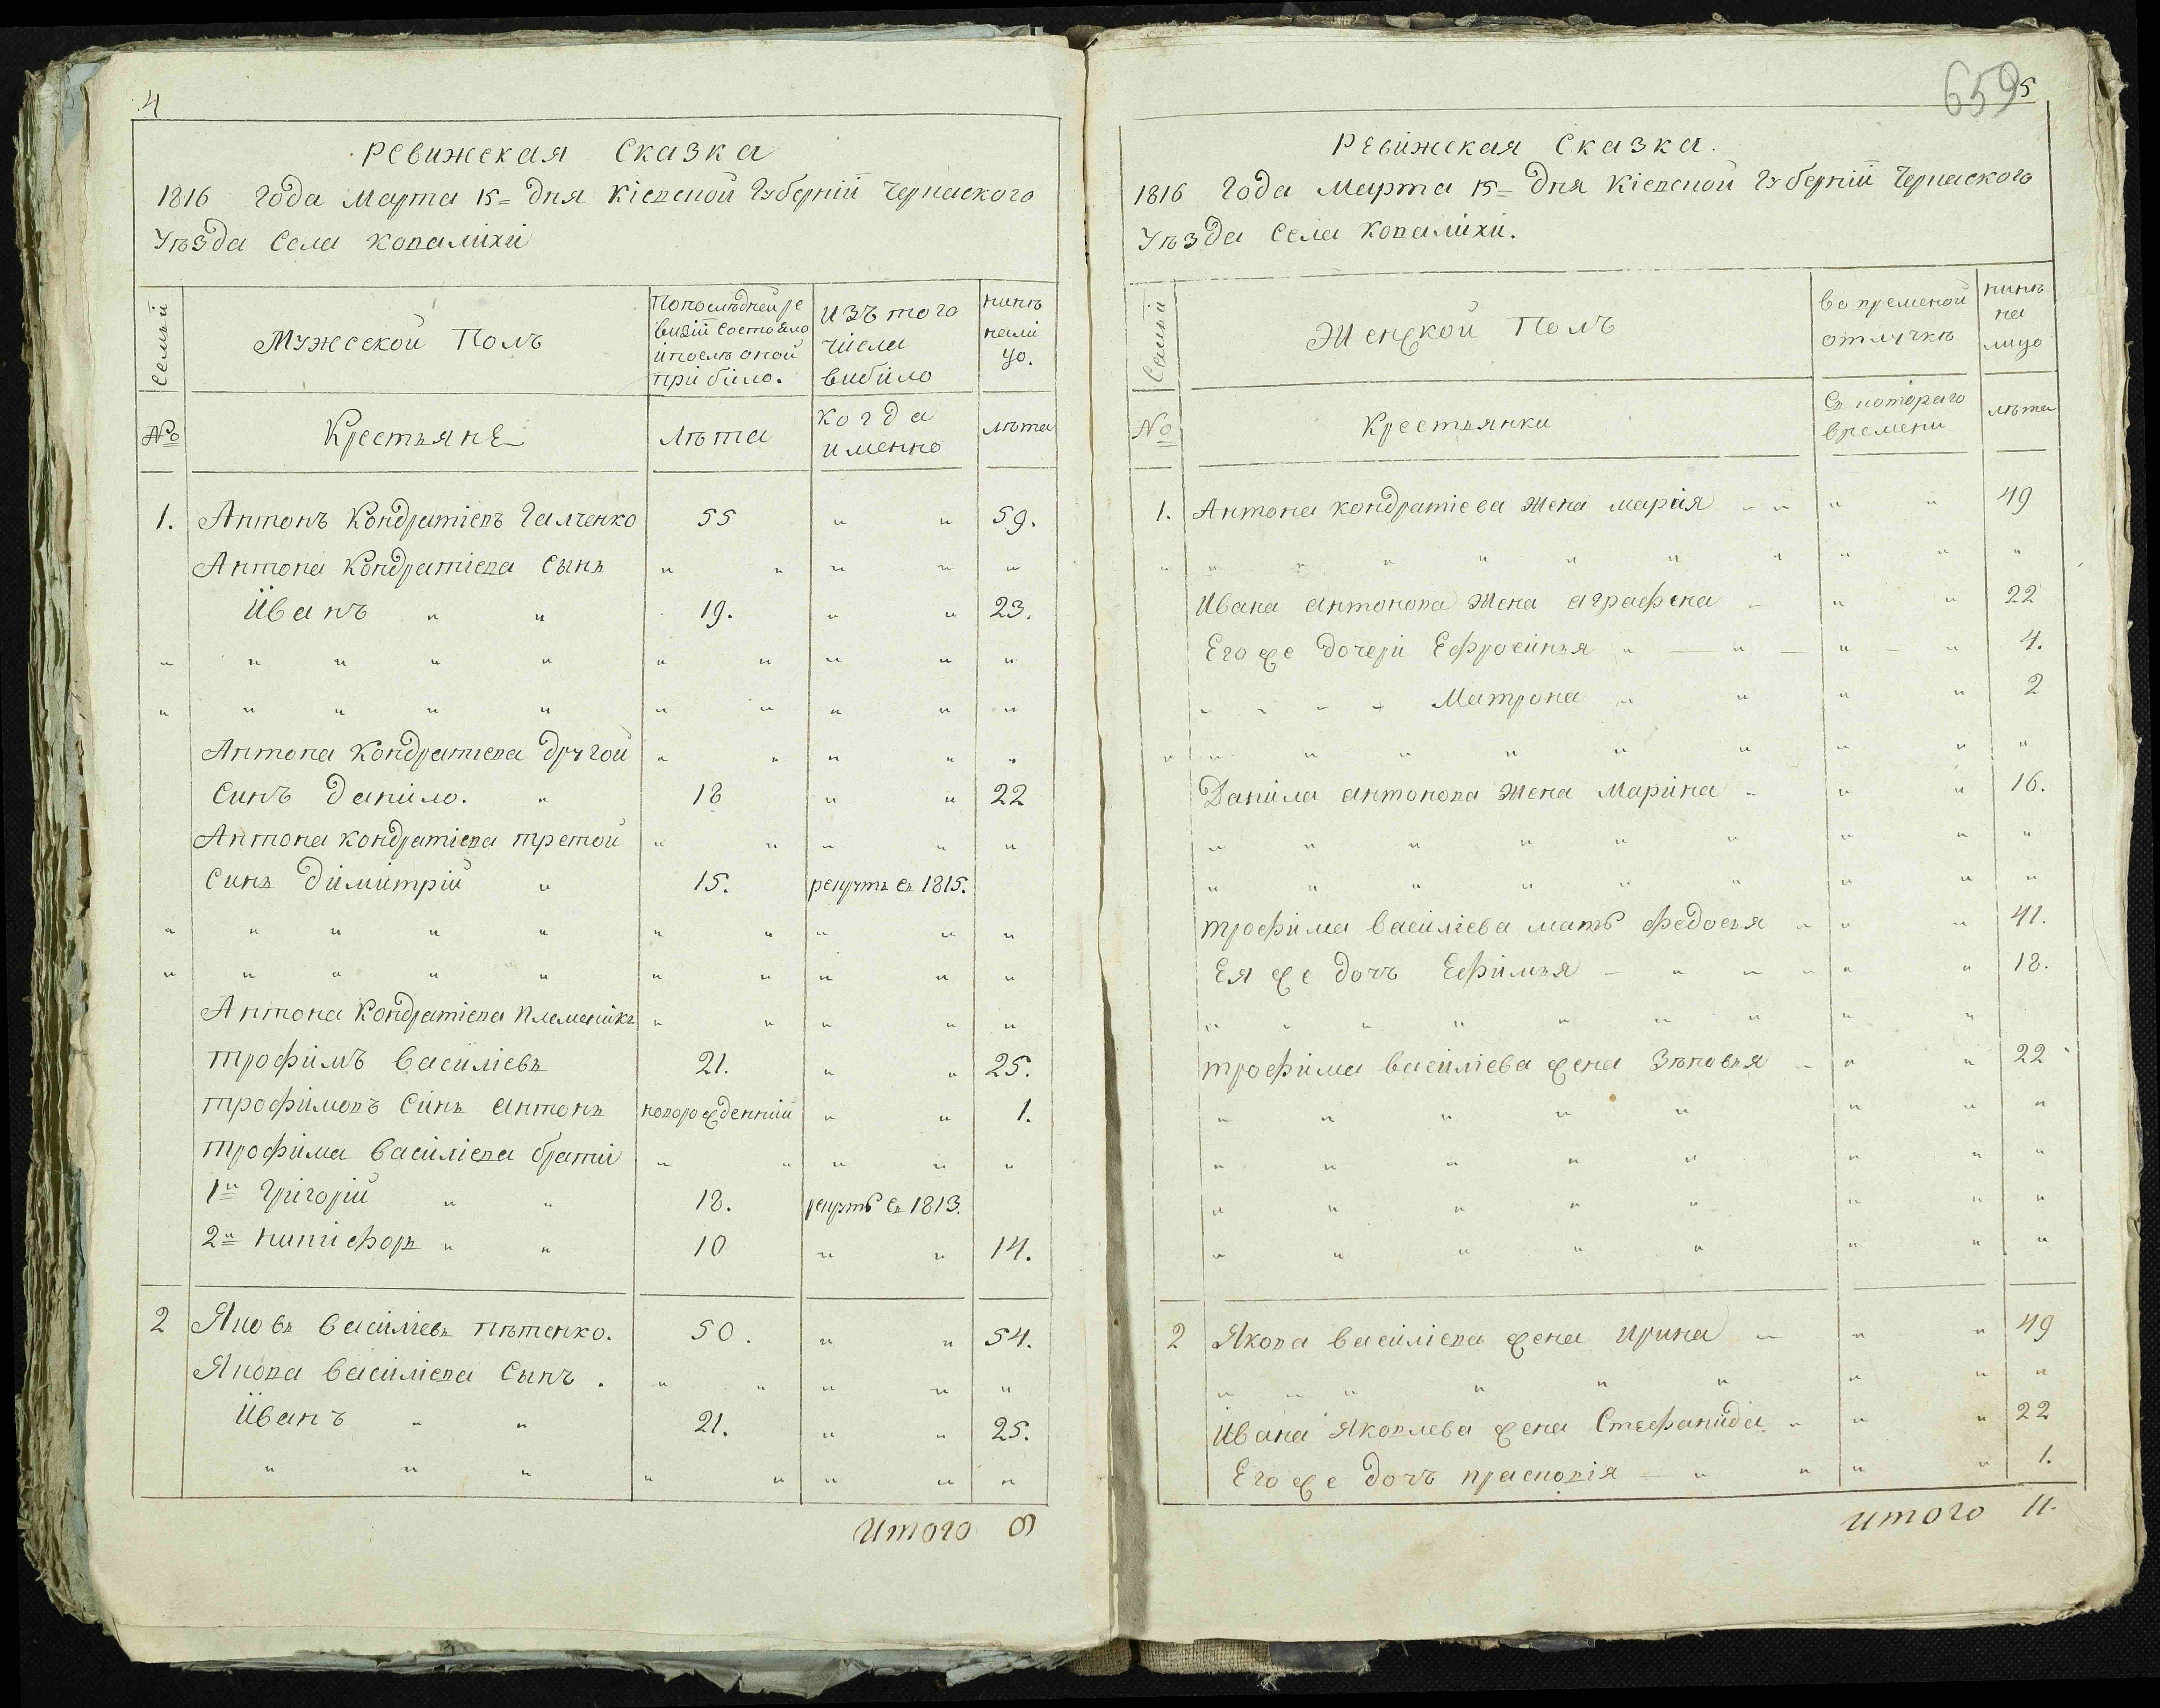 4
Ревижская Сказка
1816 Года Марта 15= дня Кіевской Губерніи Черкаского
Уезда Села Ковалихи
Семьи
Мужеской Полъ
По последней ре
визіи Состояло
и после оной
прибило.
изъ того
числа
вибило
нине
нали
цо.
№
Крестьяне
Лѣта
Когда
именно
лѣта
1. Антонъ Кондратіевъ Галченко 55 " " 59.
Антона Кондратіева Сынъ " " " " "
Иванъ " " 19. " " 23.
" " " " " " " " " "
" " " " " " " " " "
Антона Кондратиева другой " " " " "
Синъ Данило. " 18 " " 22
Антона Кондратіева третой " " " " "
Синъ Димитрій " 15. рекрутъ въ 1815.
" " " " " " " " " "
" " " " " " " " " "
Антона Кондратіева племеникъ " " " " "
Трофимъ Василіевъ 21. " " 25.
Трофимовъ Синъ Антонъ новорожденній " " 1.
Трофима Василіева братіи " " " " "
1й Григорій " " 18. рекрутъ въ 1813.
2й Никифоръ " " 10 " " 14.
2 Яковъ Василіевъ Пѣтенко. 50. " " 54.
Якова Василіева Сынъ. " " " " "
Иванъ " " 21. " " 25.
" " " " " " " "
Итого 9
659 5
Ревижская Сказка.
1816 Года Марта 15= дня Кіевской Губерніи Черкаского
Уѣзда Села Ковалихи.
Семьи
Женской Полъ
во временой
отлучкѣ
нинѣ
на
лицо
№
Крестьянки
Съ котораго
времени
лѣта
1. Антона Кондратіева жена Марія " " " " 49
" " " " " " " " " " "
Ивана Антонова жена Аграфена " " " 22
Его же дочери Ефросинья " " " " 4.
" " " " Матрона " " " " 2
" " " " " " " " " "
Данила Антонова жена Марина " " " 16.
" " " " " " " " "
" " " " " " " " "
Трофима Василіева мать Федосья " " " 41.
Ея же дочъ Ефимья " " " " " " 18.
" " " " " " " " "
Трофима Василіева жена Зѣновья " " " 22
" " " " " " " "
" " " " " " " "
" " " " " " " "
" " " " " " " "
2 Якова Василіева жена Ирина " " " 49
" " " " " " " " "
Ивана Яковлева жена Стефанида " " " 22
Его же дочъ Прасковія " " " " " 1.
Итого 11.